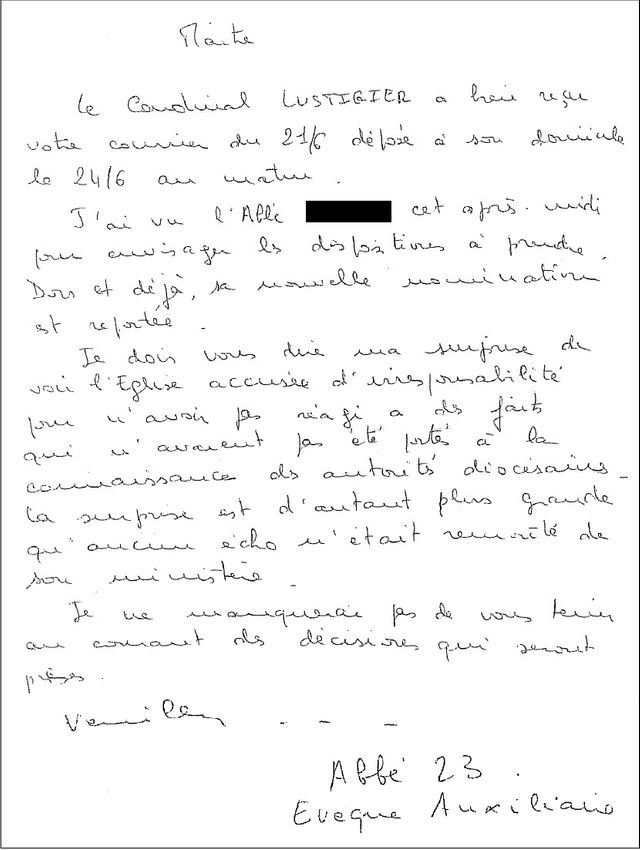 Maître
Le Cardinal LUSTIGIER a bien reçu
votre courrier du 21/6 déposé à son domicile
le 24/6 au matin.
J'ai vu l'Abbé cet après-midi
pour envisager les dispositions à prendre.
Dors et déjà, sa nouvelle nomination
est reportée.
Je dois vous dire ma surprise de
voir l'Eglise accusée d'irresponsabilité
pour n'avoir pas réagi a des faits
qui n'avaient pas été portés à la
connaissance des autorités diocésaines.
La surprise est d'autant plus grande
qu'aucun écho n'était remonté de
son ministère.
Je ne manquerai pas de vous tenir
au courant des décisions qui seront
prises.
Veuillez - - -
Abbé 23.
Eveque Auxiliaire